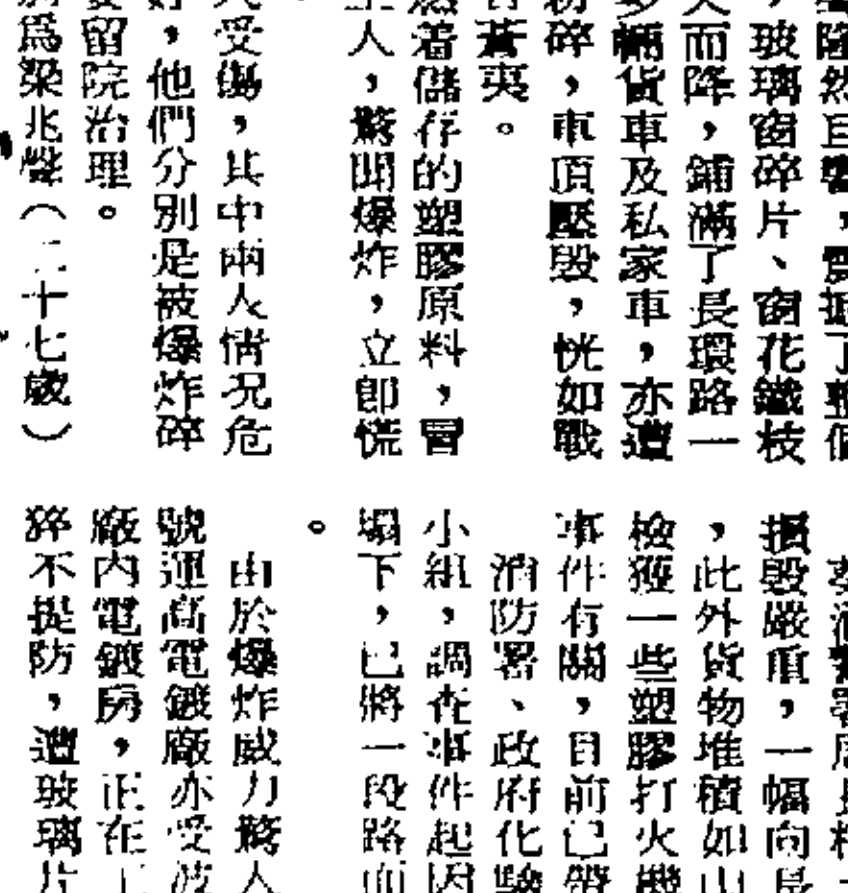 隆然巨響，震撼了整個
，玻璃窗碎片、窗花鐵枝
而降，鋪滿了長環路一
輛貨車及私家車，亦遭
碎，車頂壓毀，恍如戰
蒼夷。
着儲存的塑膠原料，冒
人，驚聞爆炸，立即慌
。
受傷，其中兩人情況危
，他們分別是被爆炸碎
留院治理。
爲梁兆聲（二十七歲）
損毀嚴重，一幅向長
，此外貨物堆積如山
檢獲一些塑膠打火機
事件有關，目前已帶
消防署、政府化驗
小組，調查事件起因
塌下，已將一段路面
。
由於爆炸威力驚人
號運高電鍍廠亦受波
廠內電鍍房，正在工
猝不提防，遭玻璃片